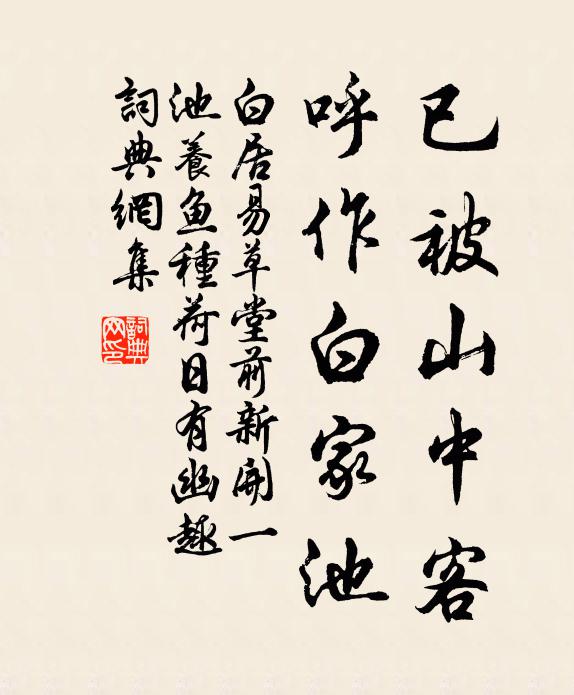 已被山中客
呼作白家池
白居易草堂前新開一
池養魚種荷日有幽趣
詞典網集
詞典
网印